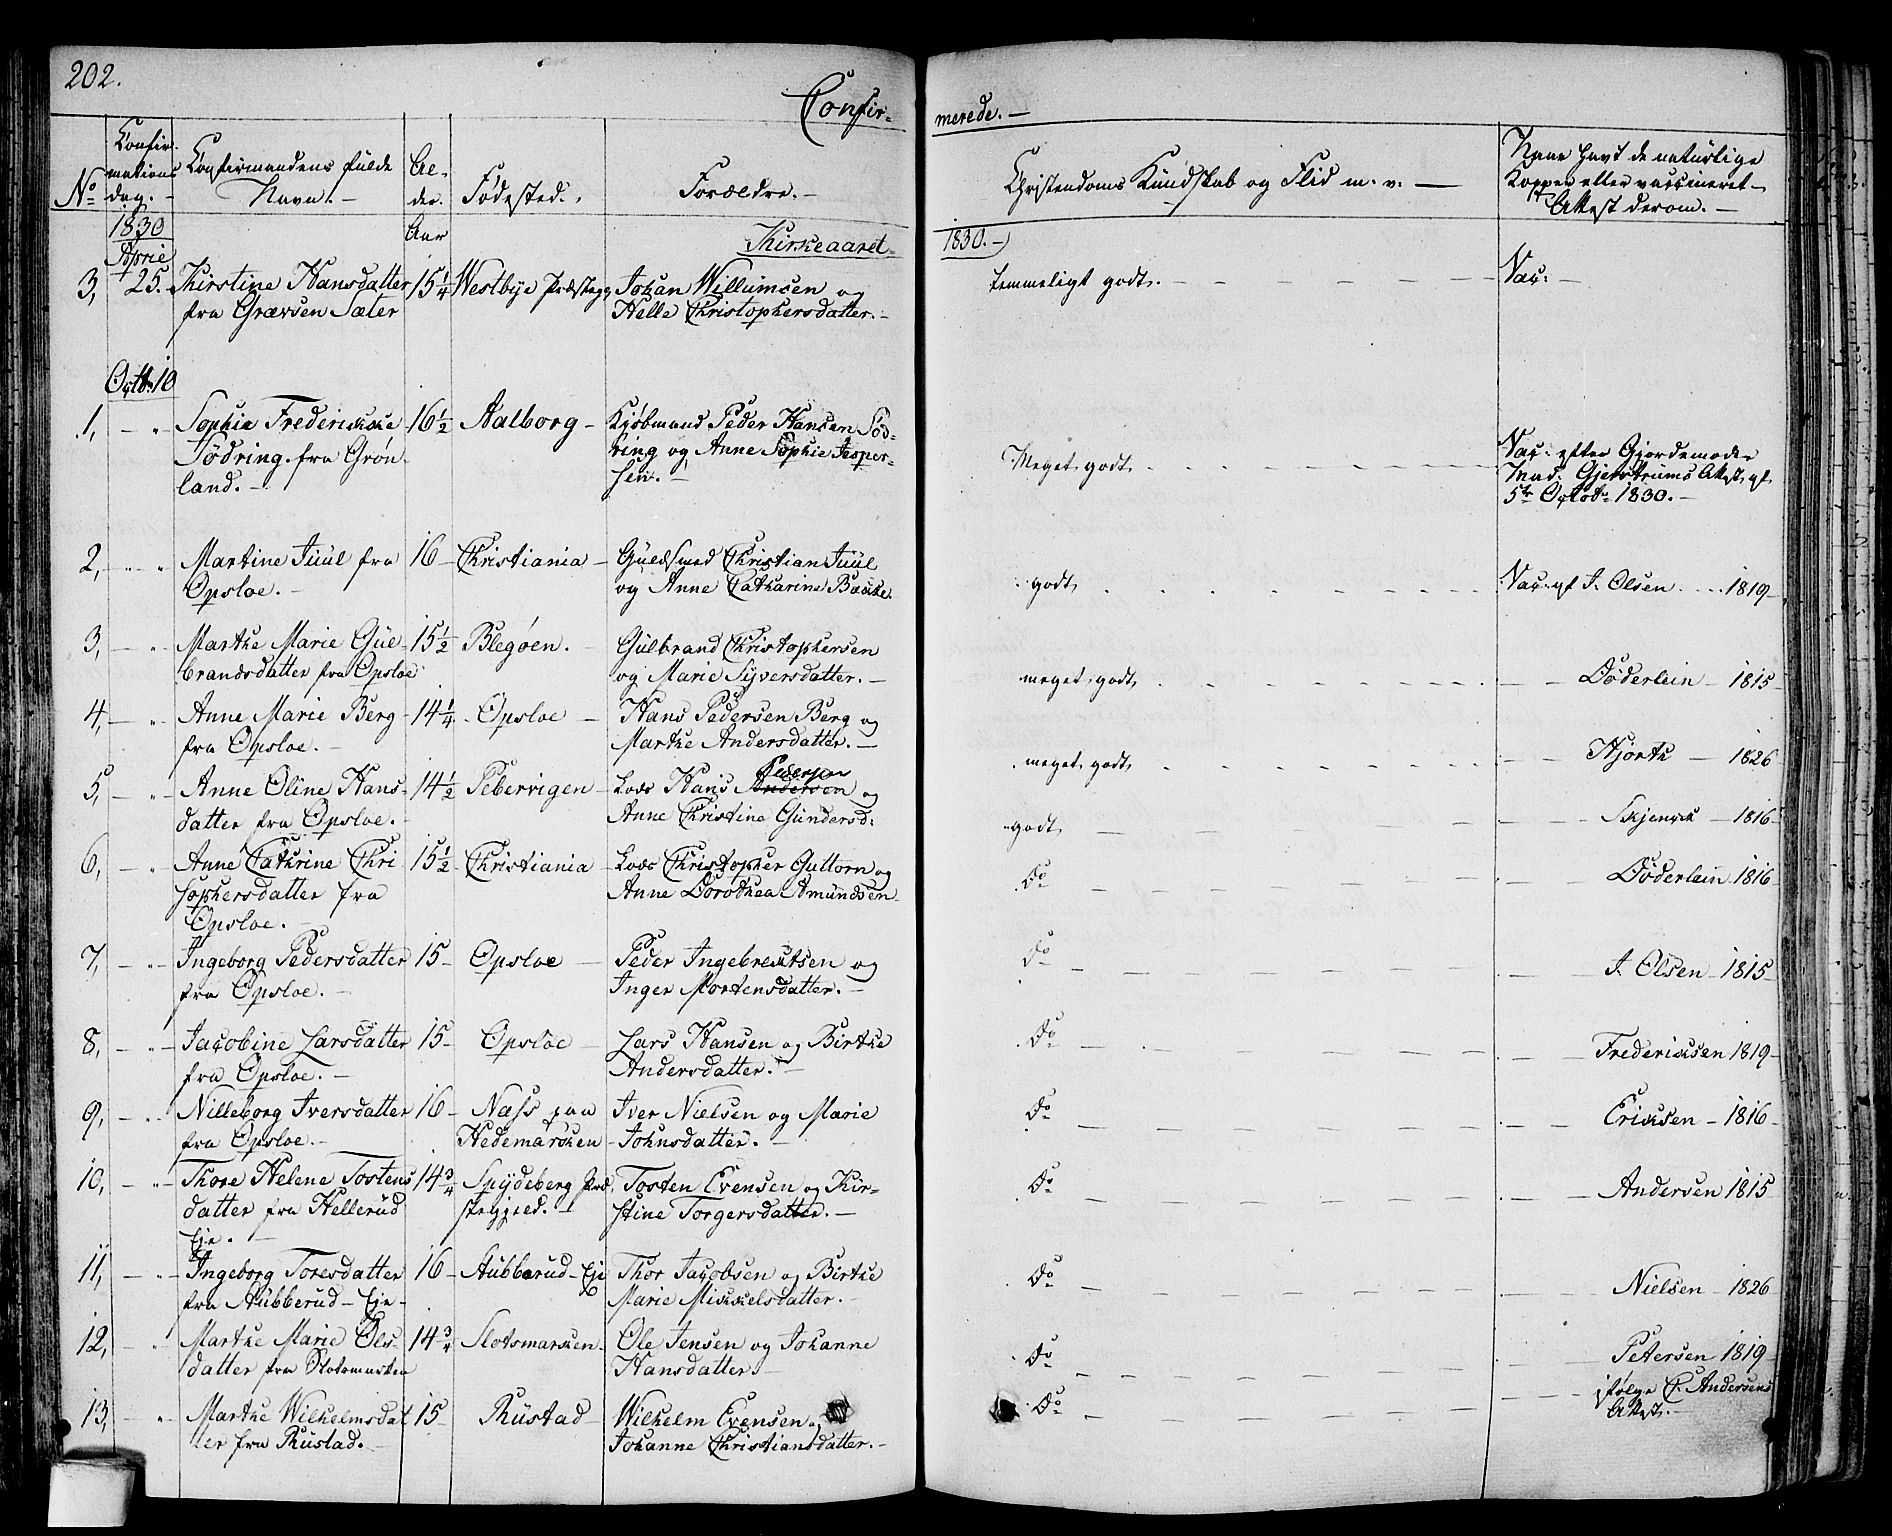 202.
Confir-
merede. -
No
Confir-
mations
dag. -
Confirmandens fulde
Navn. -
Al-
der.
Fødested.
Forældre. -
Christendoms Kundskab og Flid m. v. -
Naar havt de naturlige
Kopper eller vaccineret -
Attest derom. -
1830
Aar
Kirkeaaret
1830. -
April
3, 25. Kirstine Hansdatter 15 1/4 Westbye Præsteg Johan Willumsen og temmeligt godt. - Vac: -
fra Grævsen Sæter Helle Christophersdatter. -
Octb: 10
1, - " - Sophie Frederikke 16 1/2 Aalborg - Kjøbmand Peder Hansen Sød-
Södring fra Grøn- ring og Anne Sophie Jesper- Meget godt Vac: efter Gjordemoder
land. - sen. - Mad: Gjerdrums Attest af
5te Octob: 1830. -
2, - " - Martine Juul fra 16 - Christiania - Guldsmed Christian Juul
Opsloe. - og Anne Catharine Backe. godt Vac: af J. Olsen 1819 -
3, - " - Marthe Marie Gul- 15 1/2 Blegøen. - Gulbrand Christophersen
brandsdatter fra Opsloe og Marie Syversdatter. - meget godt - Döderlein - 1815 -
4, - " - Anne Marie Berg - 14 1/4 - Opsloe - Hans Pedersen Berg og
fra Opsloe. - Marthe Andersdatter. - meget godt - Hjorth - 1826
5, - " - Anne Oline Hans- 14 1/2 Pebervigen - Lods Hans Andersen Pedersen og
datter fra Opsloe. - Anne Christine Gundersd: godt - Skjenck - 1816
6, - " Anne Cathrine Chri 15 1/2 Christiania - Lods Christopher Guttorm og Do - Döderlein 1816
sophersdatter fra Anne Dorothea Amundsen
Opsloe. -
7, - " - Ingeborg Pedersdatter 15 - Opsloe - Peder Ingebrektsen og Do - J. Olsen - 1815
fra Opsloe. - Inger Mortensdatter. -
8, - " - Jacobine Larsdatter 15 - Opsloe - Lars Hansen og Birthe Do - Frederiksen 1819 -
fra Opsloe. - Andersdatter. -
9, - " Nilleborg Iversdatter 16 - Næss paa Iver Nielsen og Marie Do - Eriksen - 1816 -
fra Opsloe. - Hedemarken - Johnsdatter. -
10, - " - Thore Helene Tostens 14 3/4 Spydeberg Præ Tosten Evensen og Kir- Do - Andersen 1815
datter fra Hellerud stegjeld. - stine Torgersdatter. -
Eje. -
11, - " - Ingeborg Toresdatter 16 - Aubberud - Eje Thor Jacobsen og Birthe Do - Nielsen - 1826
fra Aubberud - Eje - Marie Mikkelsdatter. -
12, - " Marthe Marie Ols- 14 3/4 Slotsmarken - Ole Jensen og Johanne Do - Petersen 1819 -
datter fra Slotsmarken Hansdatter. -
13, - " Marthe Wilhelmsdat 15 - Rustad - Wilhelm Evensen og Do - ifølge C. Andersens
ter fra Rustad. - Johanne Christiansdatter. - Attest. -